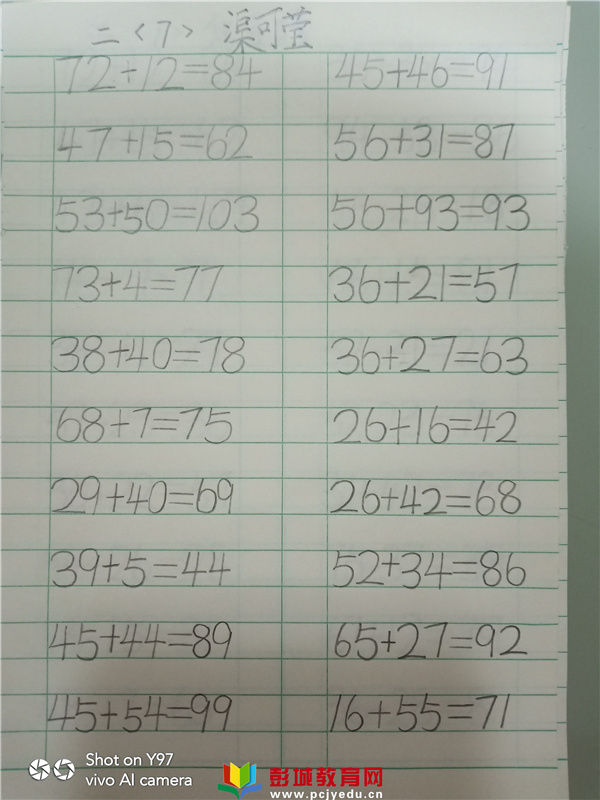 二〈7〉 渠可莹
72+12=84 45+46=91
47+15=62 56+31=87
53+50=103 56+93=93
73+4=77 36+21=57
38+40=78 36+27=63
68+7=75 26+16=42
29+40=69 26+42=68
39+5=44 52+34=86
45+44=89 65+27=92
45+54=99 16+55=71
Shot on Y97
vivo AI camera
彭城教育网
www.pcjyedu.cn